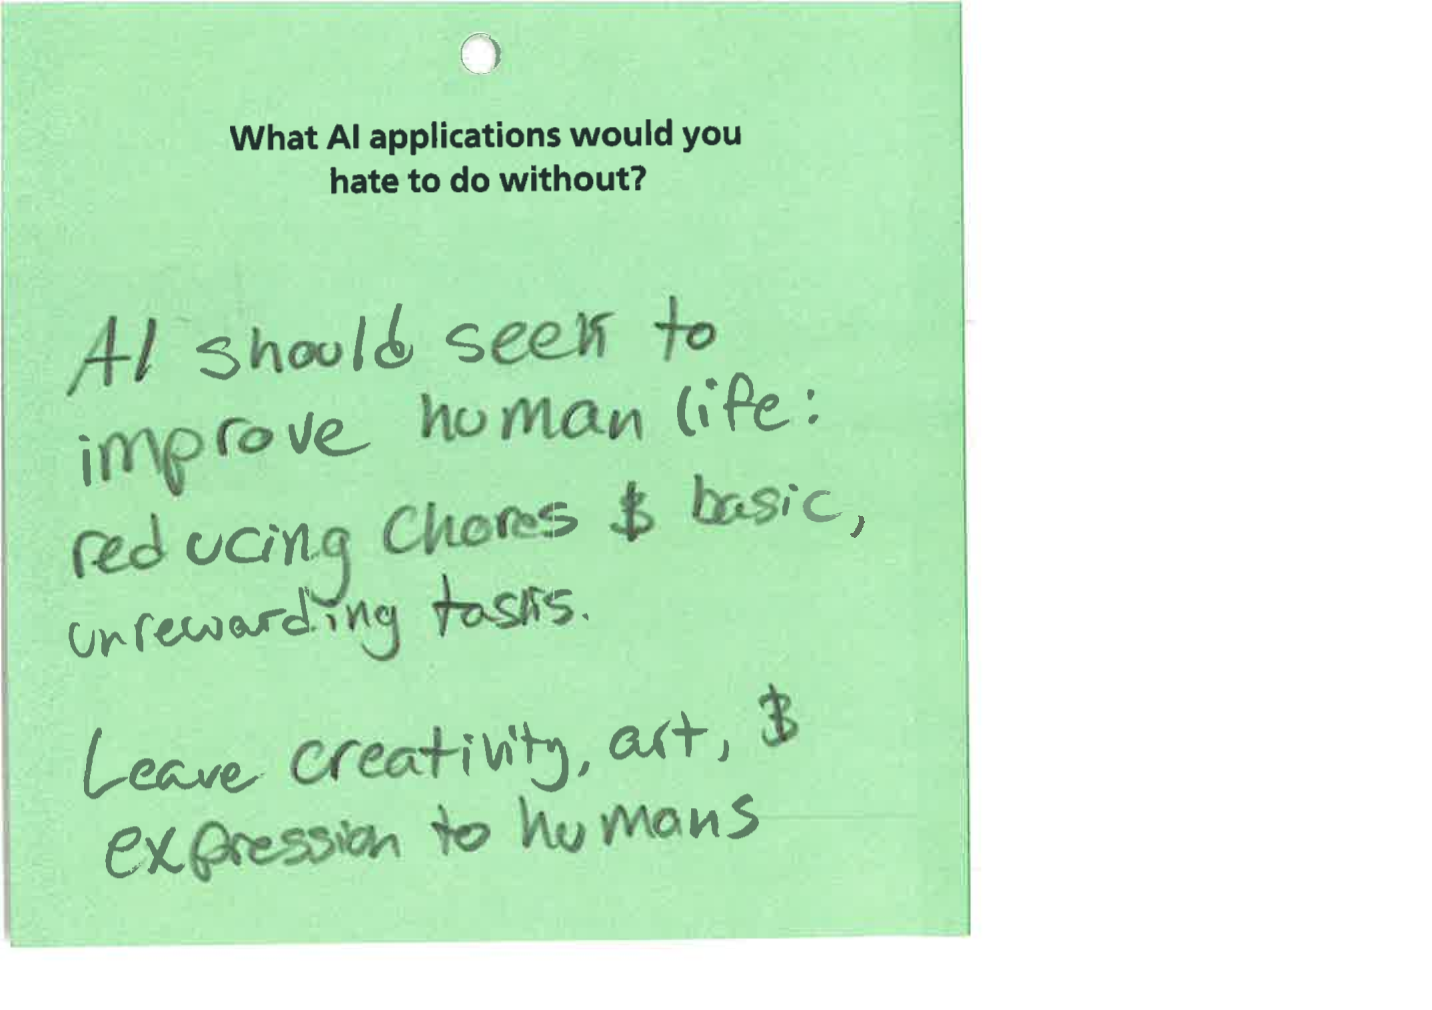 What AI applications would you
hate to do without?
AI should seek to
improve human life:
reducing chores & basic,
unrewarding tasks.
Leave creativity, art, &
expression to humans